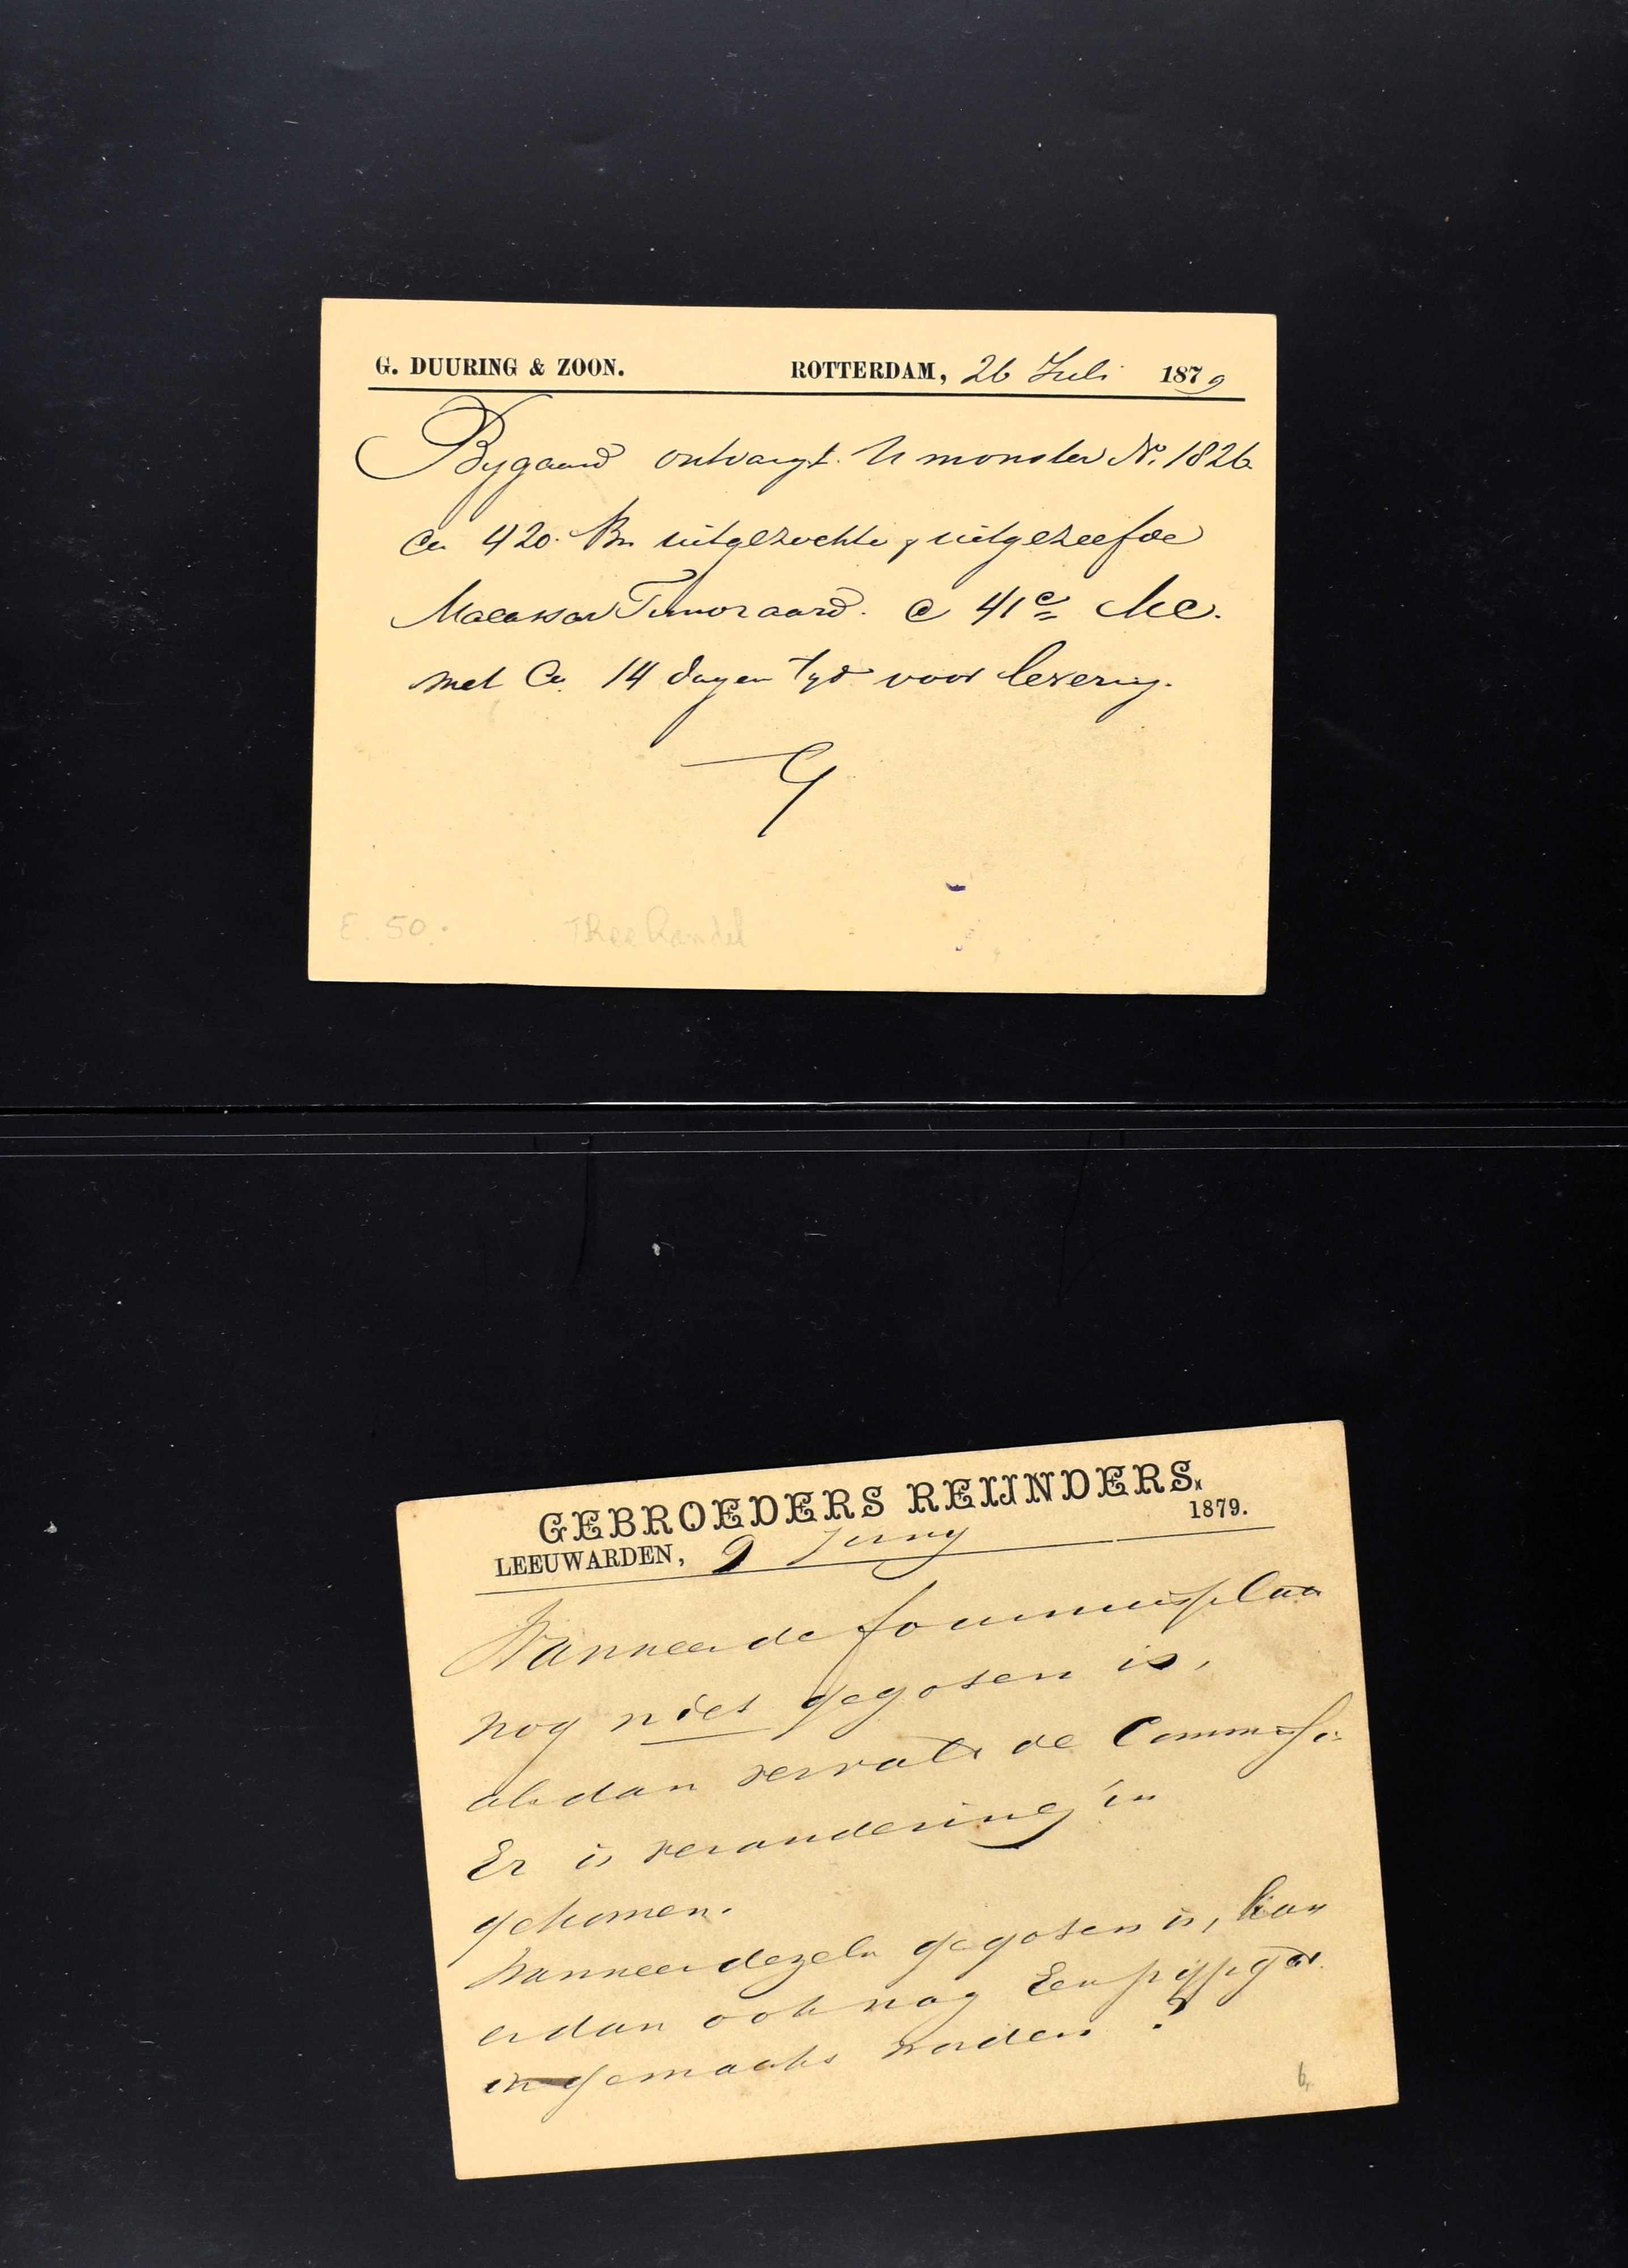 G. DUURING & ZOON. ROTTERDAM, 26 Juli 1879
Bygaand ontvangt U monster No. 1826
Ca 420. Bn uitgezochte & uitgezeefde
Macassar Timoraard. a 41 c
met Ca. 14 dagen tyd voor levering.
E. 50.- Theehandel
GEBROEDERS REIJNDERS.
LEEUWARDEN, 9 Juny 1879.
Wanneer de fornuisplaat
nog niet gegoten is,
alsdan vervalt de Commissie
Er is verandering in
gekomen.
Wanneer dezelve gegoten is, kan
er dan ook nog Een pijpgat
in gemaakt worden?
6,